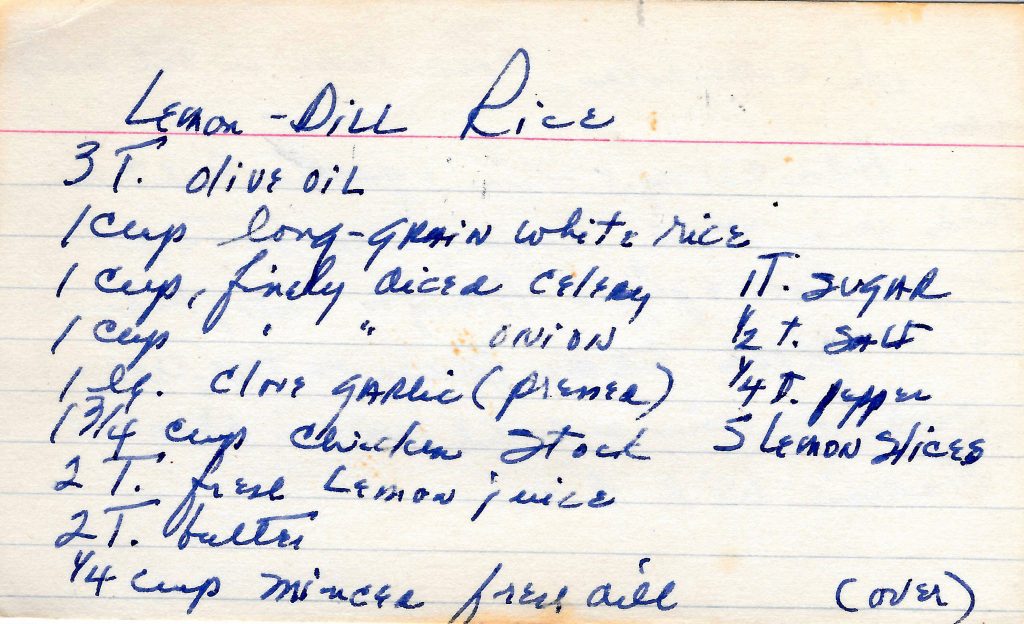 Lemon-Dill Rice
3 T. olive oil
1 cup long-grain white rice
1 cup, finely diced celery
1 cup " " onion
1 lg. clove garlic (pressed)
1 3/4 cup chicken stock
2 T. fresh lemon juice
2 T. butter
1/4 cup minced fresh dill
1T. SUGAR
1/2 t. SALT
1/4 t. pepper
5 Lemon slices
(over)